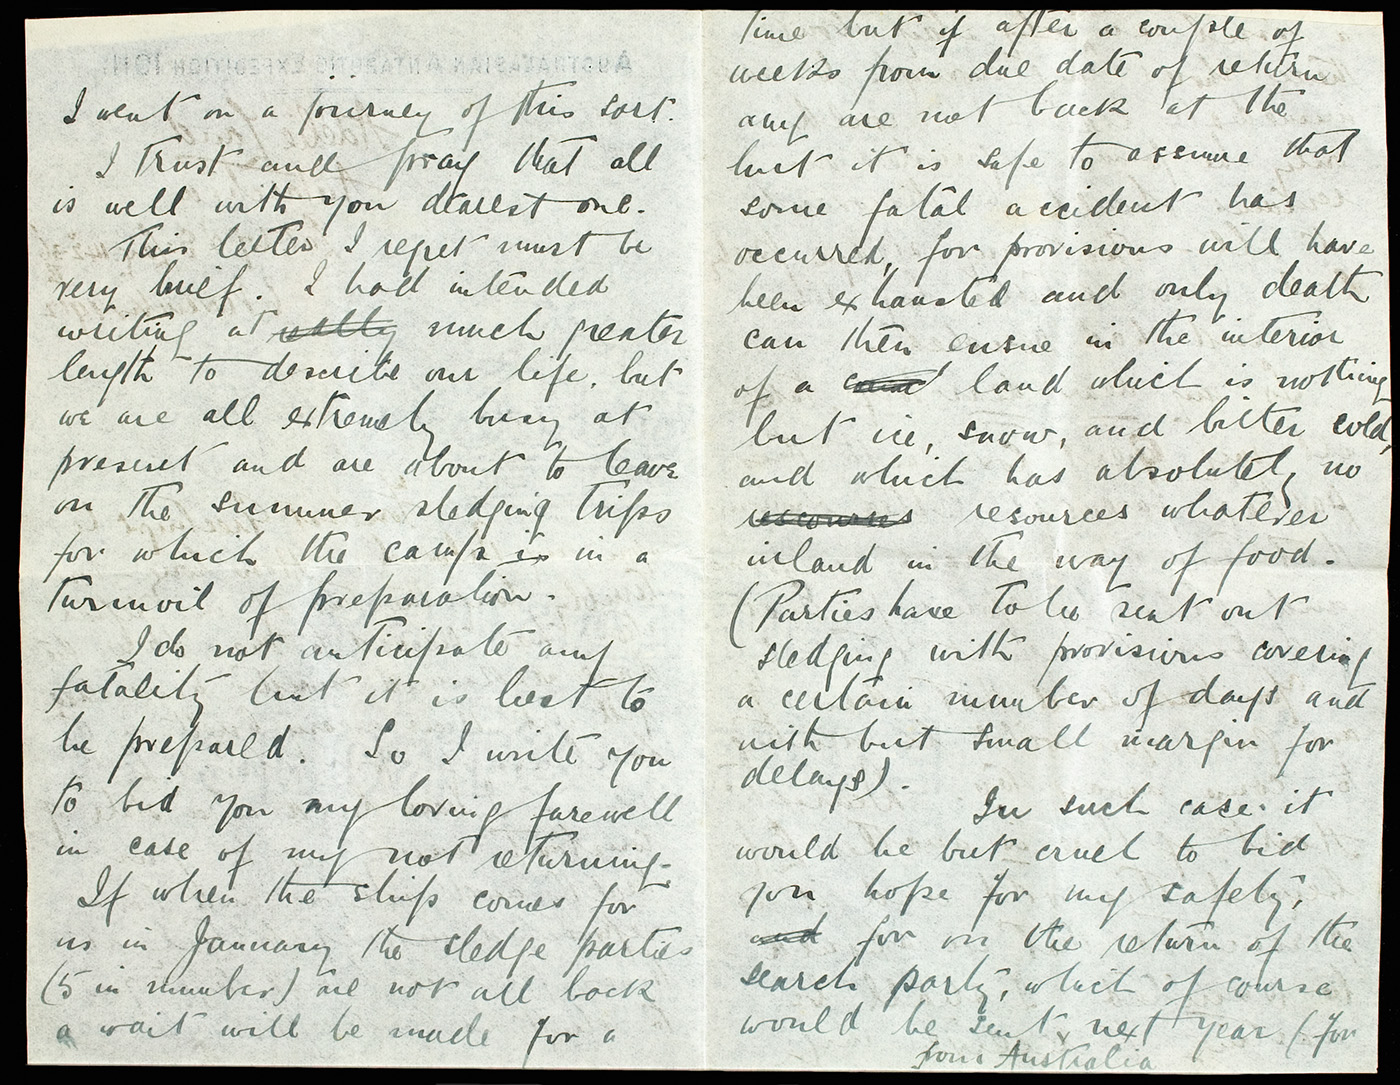 AUSTRALASIAN ANTARCTIC EXPEDITION 1911.
I went on a journey of this sort.
I trust and pray that all
is well with you dearest one.
This letter I regret must be
very brief. I had intended
writing at really much greater
length to describe our life, but
we are all extremely busy at
present and are about to leave
on the summer sledging trips
for which the camp is in a
turmoil of preparation.
I do not anticipate any
fatality but it is best to
be prepared. So I write you
to bid you my loving farewell
in case of my not returning.
If when the ship comes for
us in January the sledge parties
(5 in number) are not all back
a wait will be made for a
time but if after a couple of
weeks from due date of return
any are not back at the
hut it is safe to assume that
some fatal accident has
occurred, for provisions will have
been exhausted and only death
can then ensue in the interior
of a land which is nothing
but ice, snow, and bitter cold,
and which has absolutely no
rescourses resources whatever
inland in the way of food.
(Parties have to be sent out
sledging with provisions covering
a certain number of days and
with but small margin for
delays).
In such case it
would be but cruel to bid
you hope for my safety,
and for on the return of the
search party, which of course
would be sent next year (for
from Australia